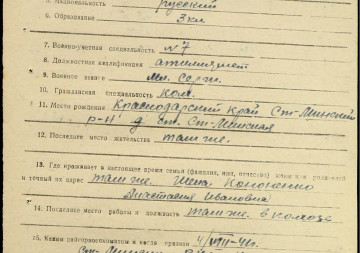 5. Национальность русский
6. Образование 3 кл
7. Военно-учетная специальность № 7
8. Должностная квалификация
9. Военное звание мл. серж.
10. Гражданская специальность кол.
11. Место рождения Краснодарский край Ст-Минский
р-н ст. Ст-Минская
12. Последнее место жительства там же.
13. Где проживает в настоящее время семья (фамилия, имя, отчество) жены или родителей
и точный их адрес там же. Жена Кононенко
Анастасия Ивановна
14. Последнее место работы и должность там же в колхозе
15. Каким райгорвоенкоматом и когда призван 4/VIII-41г.